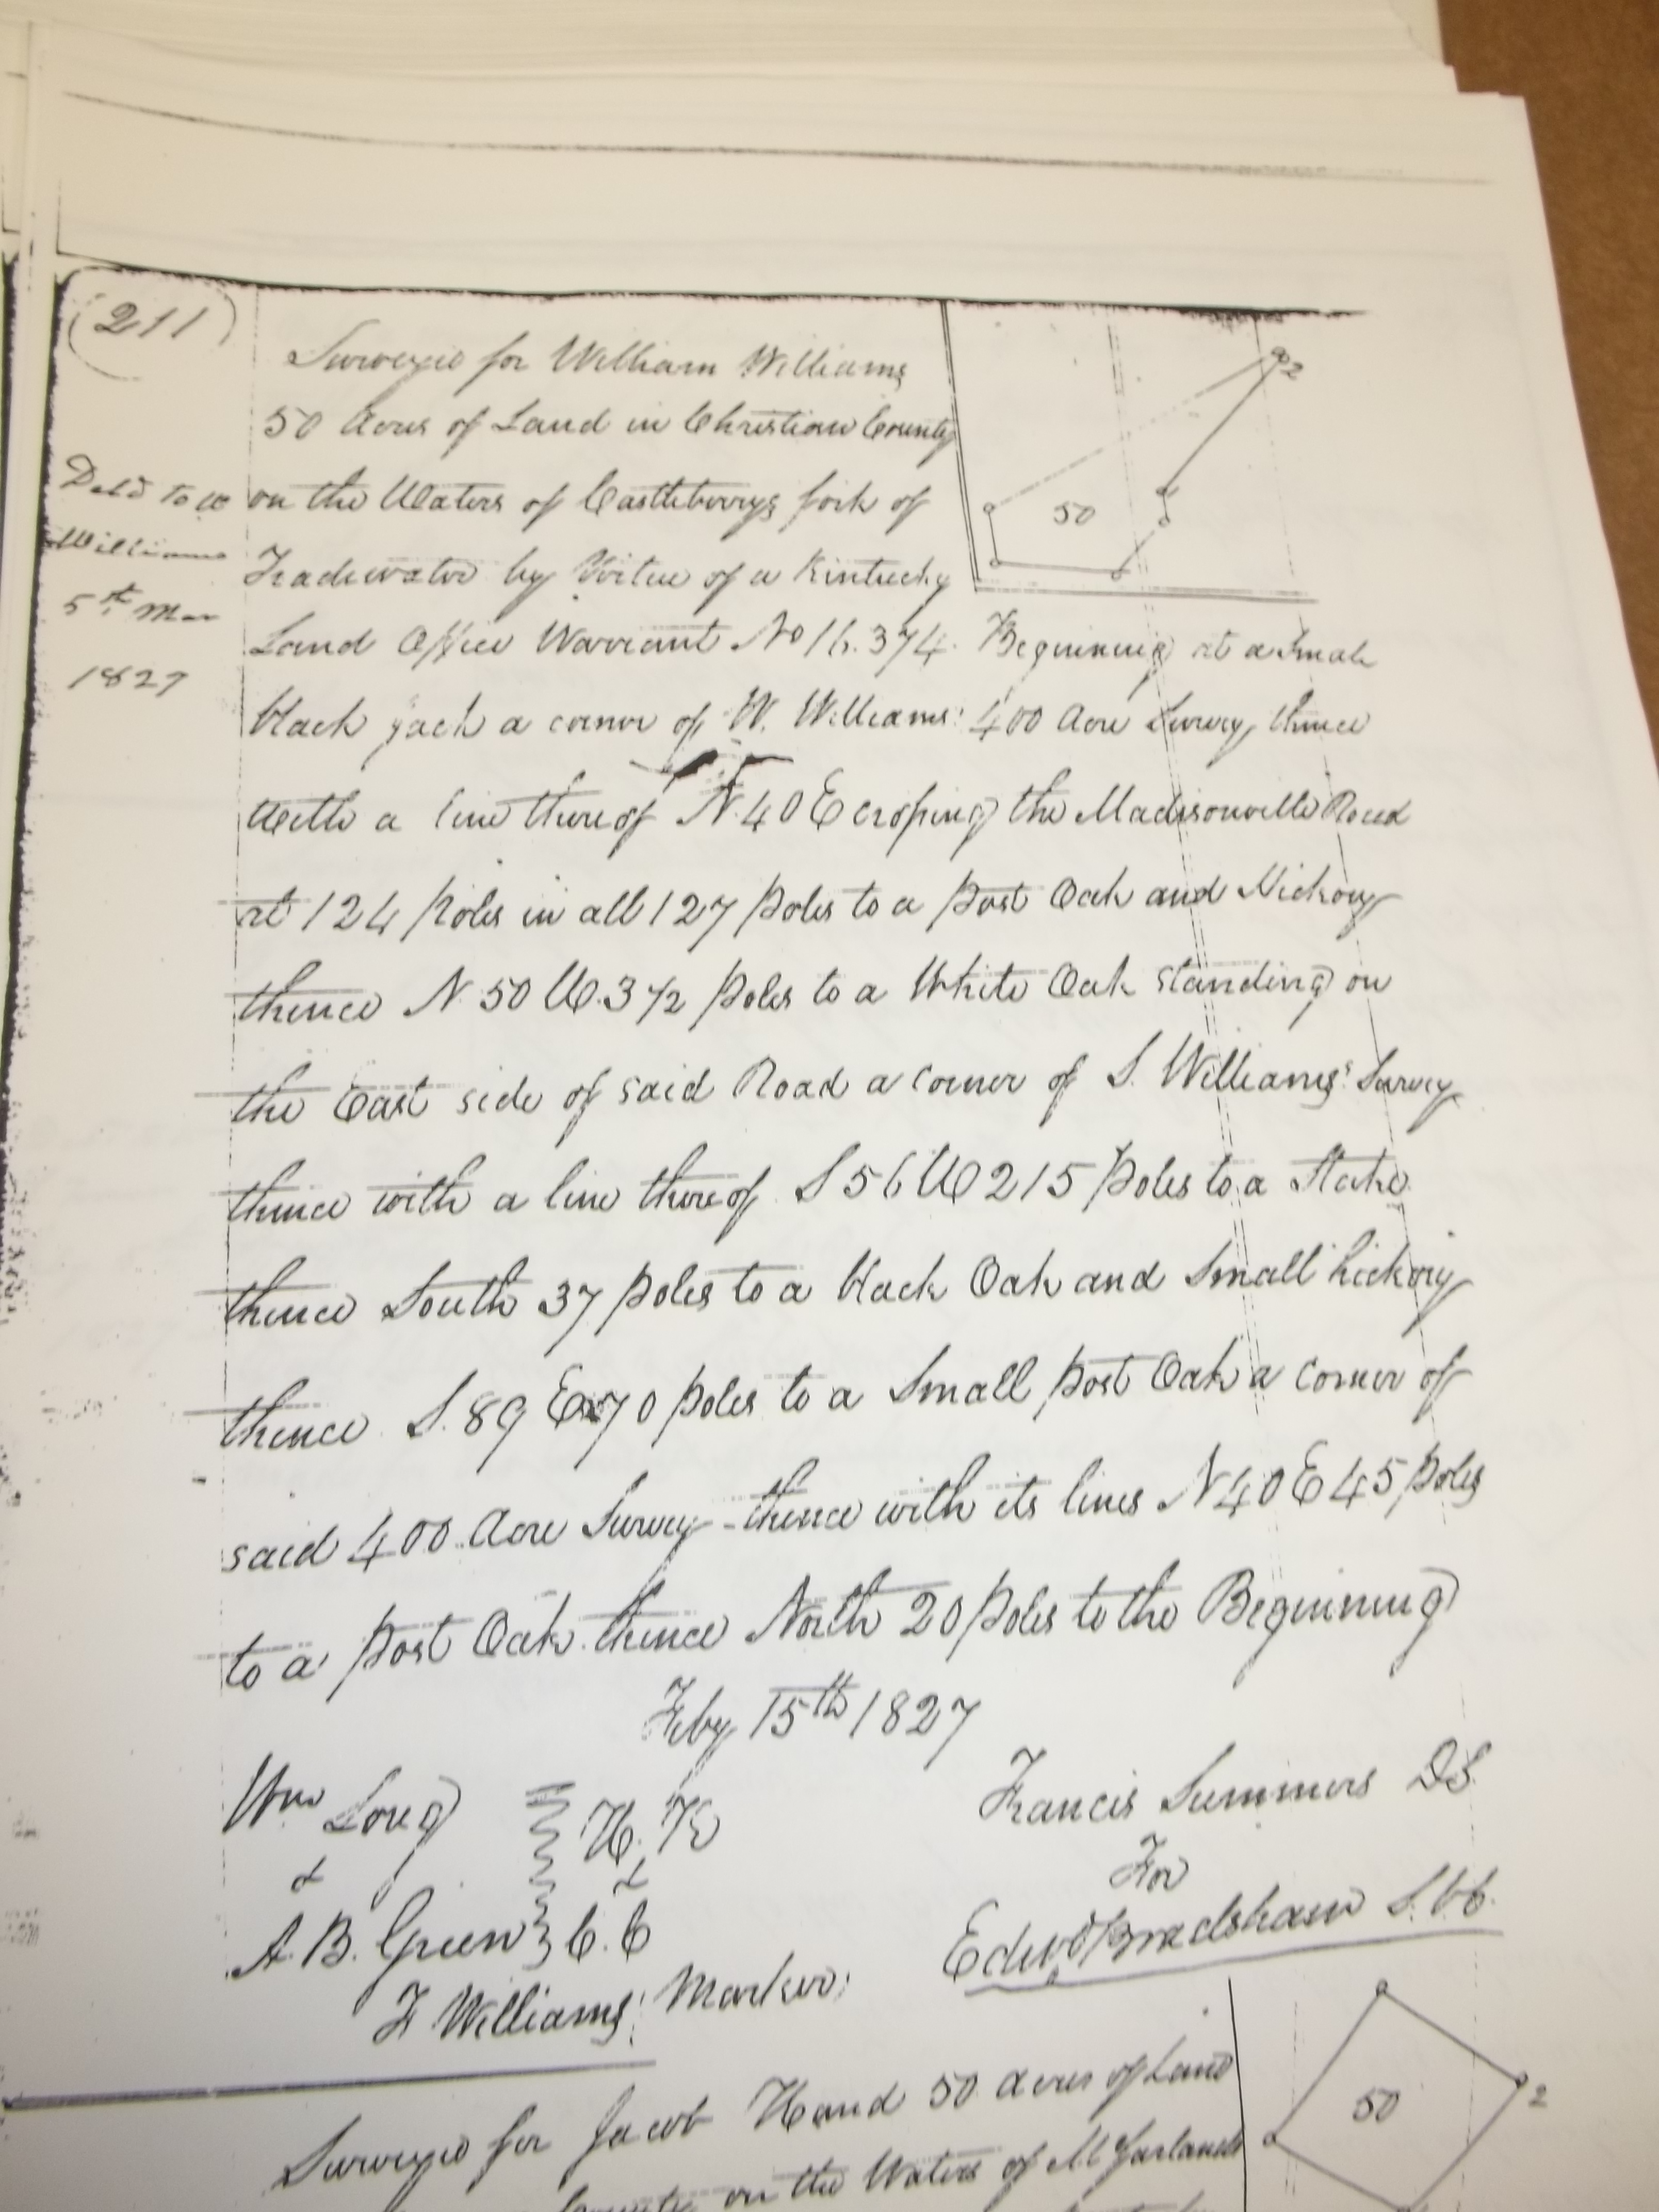 (211)
Surveyed for William Williams
50 Acres of Land in Christian County
on the Waters of Castleberrys fork of
Tradewater by Virtue of a Kintucky
Land Office Warrant No 16.374. Beginning at a Small
black jack a corner of W. Williams' 400 Acre Survey, thence
With a line there of N. 40 E croping the Madisonville Road
at 124 poles in all 127 poles to a post Oak and Hickory
thence N. 50 W. 3 1/2 poles to a White Oak standing on
the East side of said Road a corner of S. Williams' Survey
thence with a line there of S 56 W 215 Poles to a Stake
thence South 37 poles to a black Oak and Small hickory
thence S. 89 E 70 poles to a Small post Oak a corner of
said 400 Acre Survey - thence with its lines N 40 E 45 poles
to a post Oak thence North 20 poles to the Beginning
Feby 15th 1827
Deld to W
Williams
5th Mar
1827
50
2
Wm Long H. K
& &
A. B. Green C. C
F Williams' Marker
Francis Summers DS.
For
Edwd Bradshaw S.CC.
Surveyed for Jacob Hand 50 acres of Land
on the Waters of McFarlands
50
2